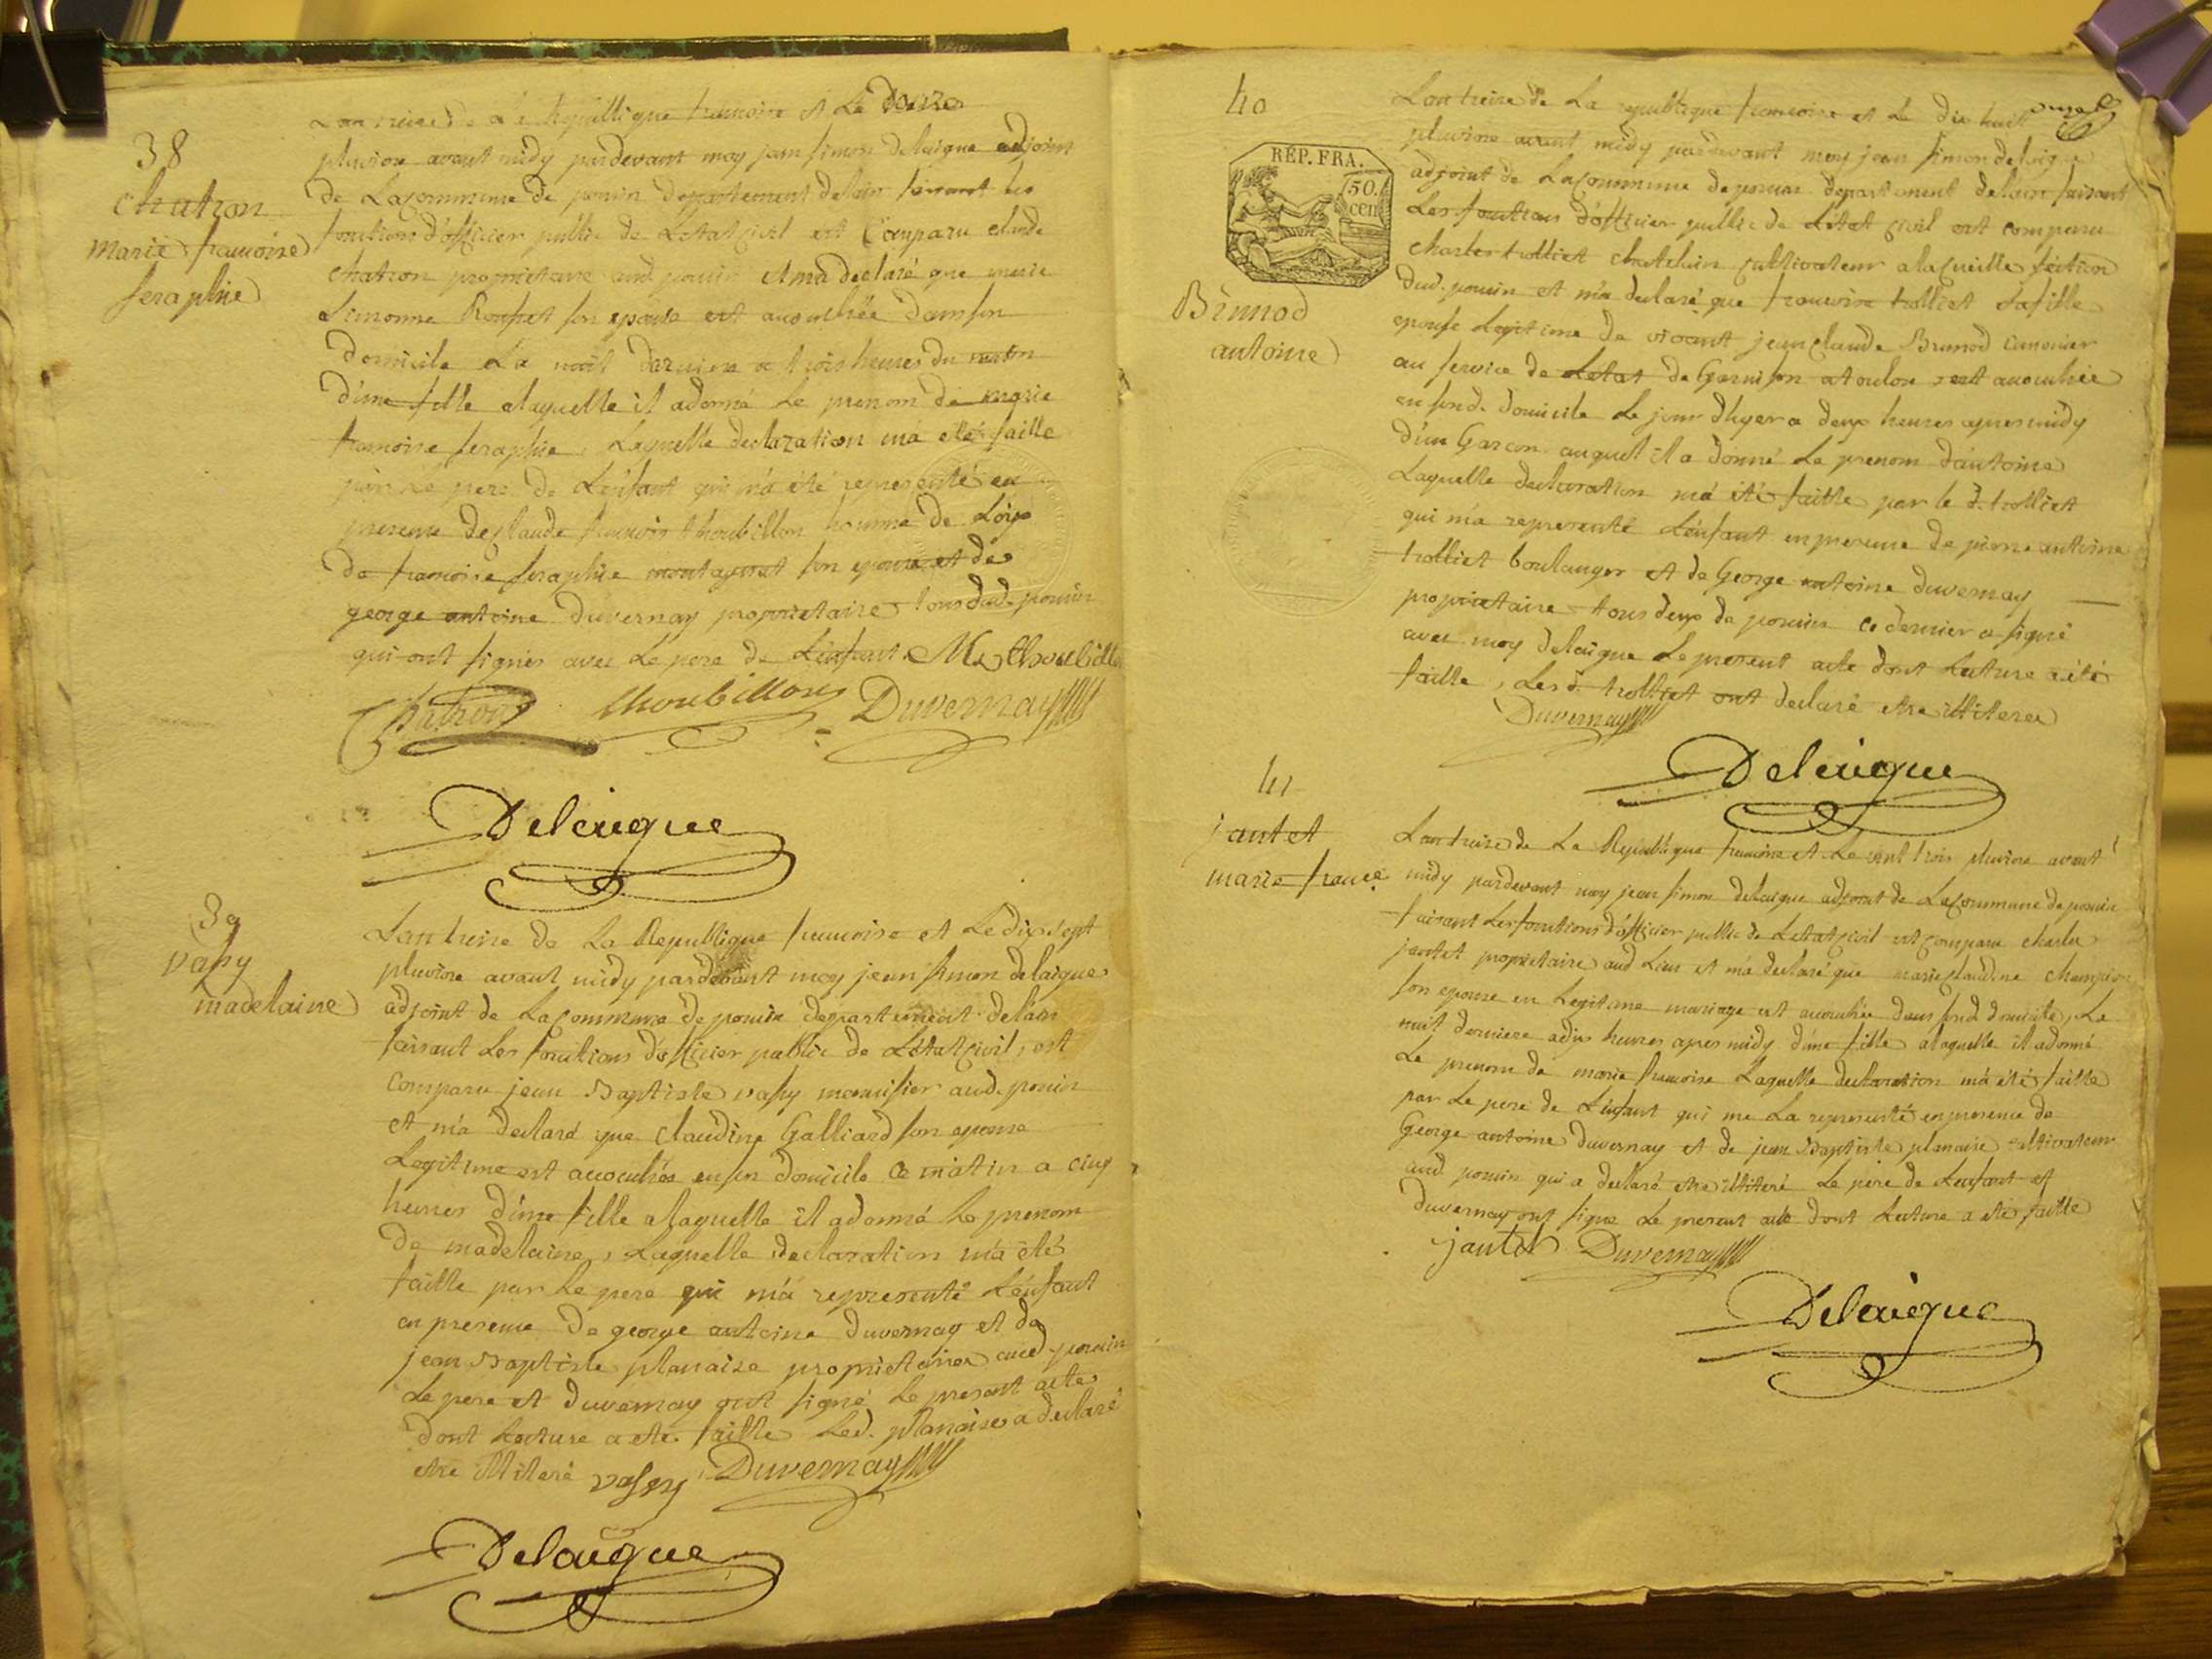 38
chatron
marie francoise
seraphie
Lan treize de la republique francoise et le douze
pluviose avant midy pardevant moy jean simon delaigue adjoint
de La commune de poncin departement de lain faisant les
fonctions d'officier public de Letat civil est Comparu claude
chatron proprietaire aud. poncin et ma declaré que marie
simonne son epouse est accouchée dans son
domicile La nuit derniere a trois heures du matin
d'une fille alaquelle il adonné Le prenom de marie
francoise seraphie, Laquelle declaration m'a eté faitte
par Le pere de L'enfant qui m'a été representé en
presence de claude francois thoubillon homme de Loix
de francoise seraphie montagnat son epouse et de
george antoine Duvernay proprietaire tous dud. poncin
qui ont signés avec Le pere de L'enfant. Mx thoubillon
Chatron thoubillon Duvernay
Delaigue
39
vassy
madelaine
Lan treize de La Republique francoise et Le dix sept
pluviose avant midy pardevant moy jean simon delaigue
adjoint de La commune de poncin departement de lain
faisant Les fonctions d'officier public de L'état civil, est
comparu jean Baptiste vassy menuisier aud. poncin
et m'a declaré que claudine Galliard son epouse
Legitime est accouchée en son domicile ce matin a cinq
heures d'une fille alaquelle il adonné Le prenom
de madelaine, Laquelle declaration m'a été
faitte par Le pere qui m'a representé L'enfant
en presence de george antoine duvernay et de
jean Baptiste planaise proprietaires aud. poncin
Le pere et duvernay ont signé Le present acte
dont Lecture a ete faitte Led. planaise a declaré
etre illiteré vassy Duvernay
Delaigue
40
RÉP. FRA.
50.
cen
Brunod
antoine
Lan treize de La republique francoise et Le dix huit
pluviose avant midy pardevant moy jean simon delaigue
adjoint de La commune de poncin departement de lain faisant
Les fonctions d'officier public de L'état civil est comparu
charles trolliet chatelain cultivateur a la cueille section
dud. poncin et m'a declaré que francoise trolliet sa fille
epouse Legitime de vivant jean claude Brunod canonier
au service de L'etat de Garnison a toulon est accouchée
en sond. domicile Le jour d'hyer a deux heures apres midy
d'un Garcon auquel il a donné Le prenom d'antoine
Laquelle declaration m'a été faitte par le d. trolliet
qui m'a representé L'enfant en presence de pierre antoine
trolliet boulanger et de George antoine duvernay
proprietaire tous deux de poncin ce dernier a signé
avec moy delaigue Le present acte dont Lecture a été
faitte, Les d. trolliet ont declaré etre illiterés
Duvernay
Delaigue
41
jantet
marie france
Lan treize de La Republique francoise et Le vint trois pluviose avant
midy pardevant moy jean simon delaigue adjoint de La commune de poncin
faisant Les fonctions d'officier public de L'etat civil est comparu charles
jantet proprietaire aud Lieu et m'a declaré que marie claudine champion
son epouse en Legitime mariage est accouchée dans sond. domicile, La
nuit derniere a dix heures apres midy d'une fille alaquelle il adonné
Le prenom de marie francoise Laquelle declaration m'a été faitte
par Le pere de L'enfant qui me La representé en presence de
George antoine duvernay et de jean Baptiste planaise cultivateur
aud. poncin qui a declaré etre illiteré Le pere de L'enfant et
Duvernay ont signé Le present acte dont Lecture a eté faitte
jantet Duvernay
Delaigue